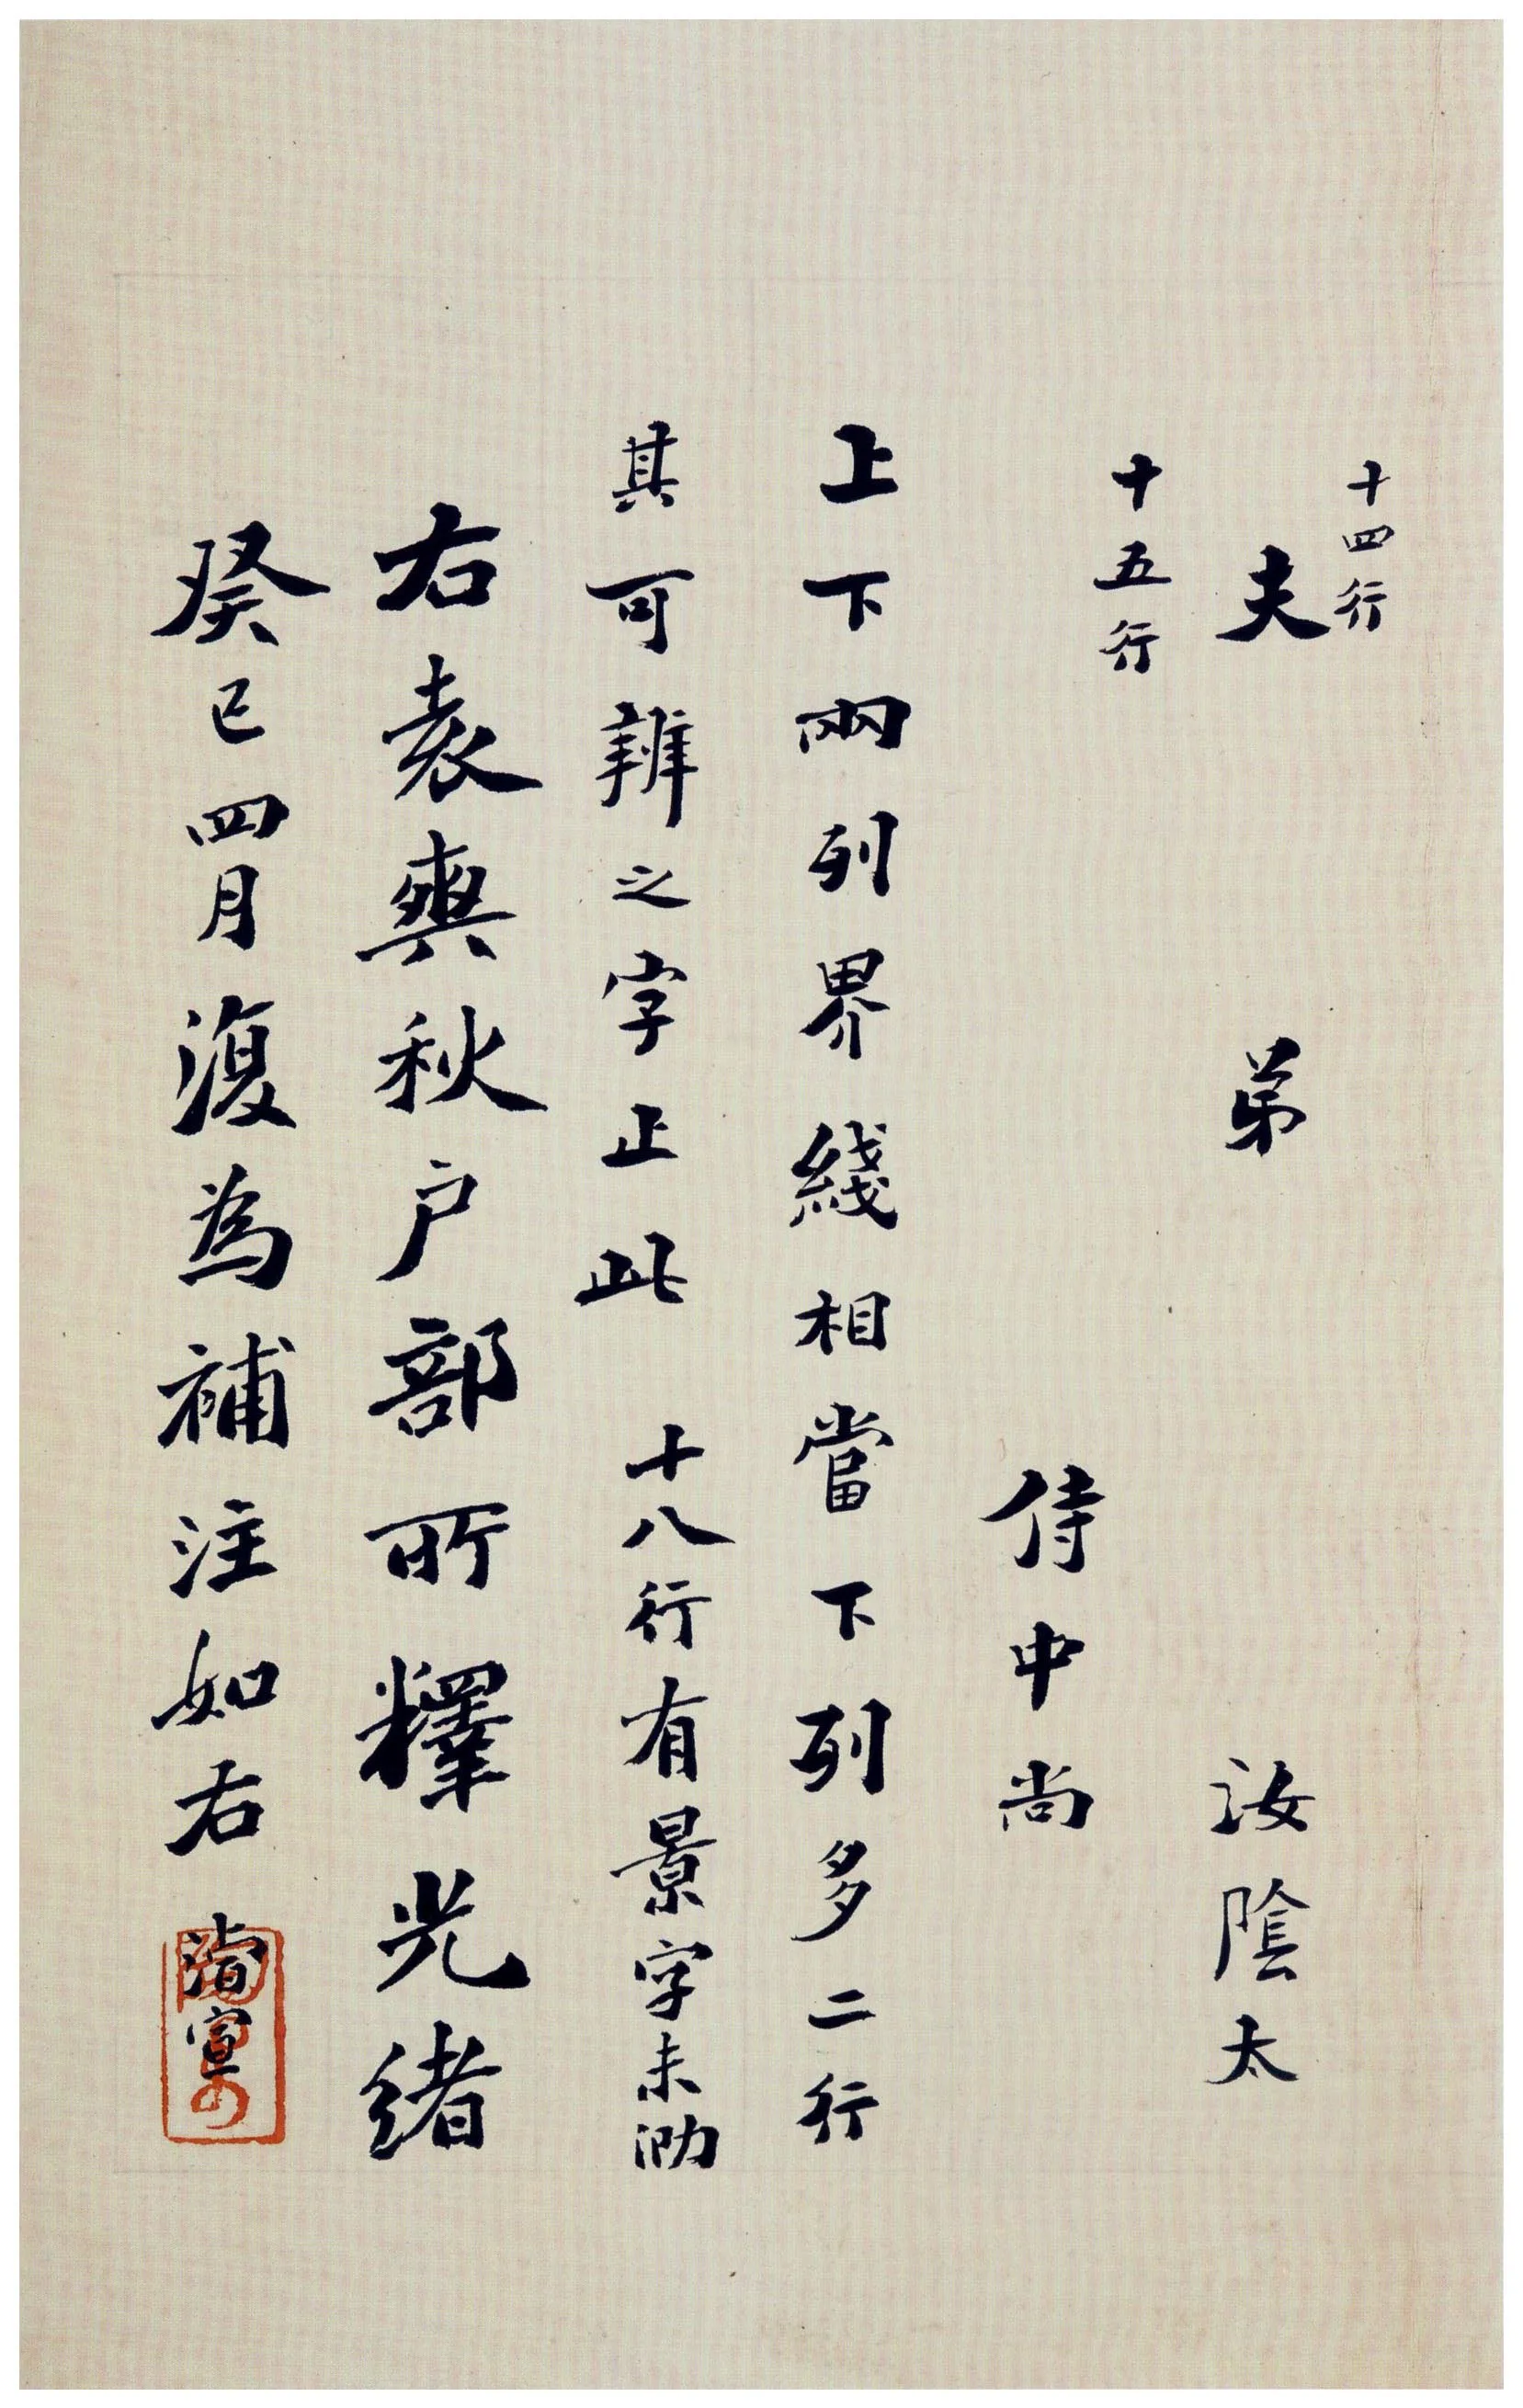 十四行
夫 弟 汝陰太
十五行
侍中尚
上下兩列界綫相當下列多二行
其可辨之字止此 十八行有景字未泐
右袁爽秋户部所釋光緒
癸巳四月復為補注如右